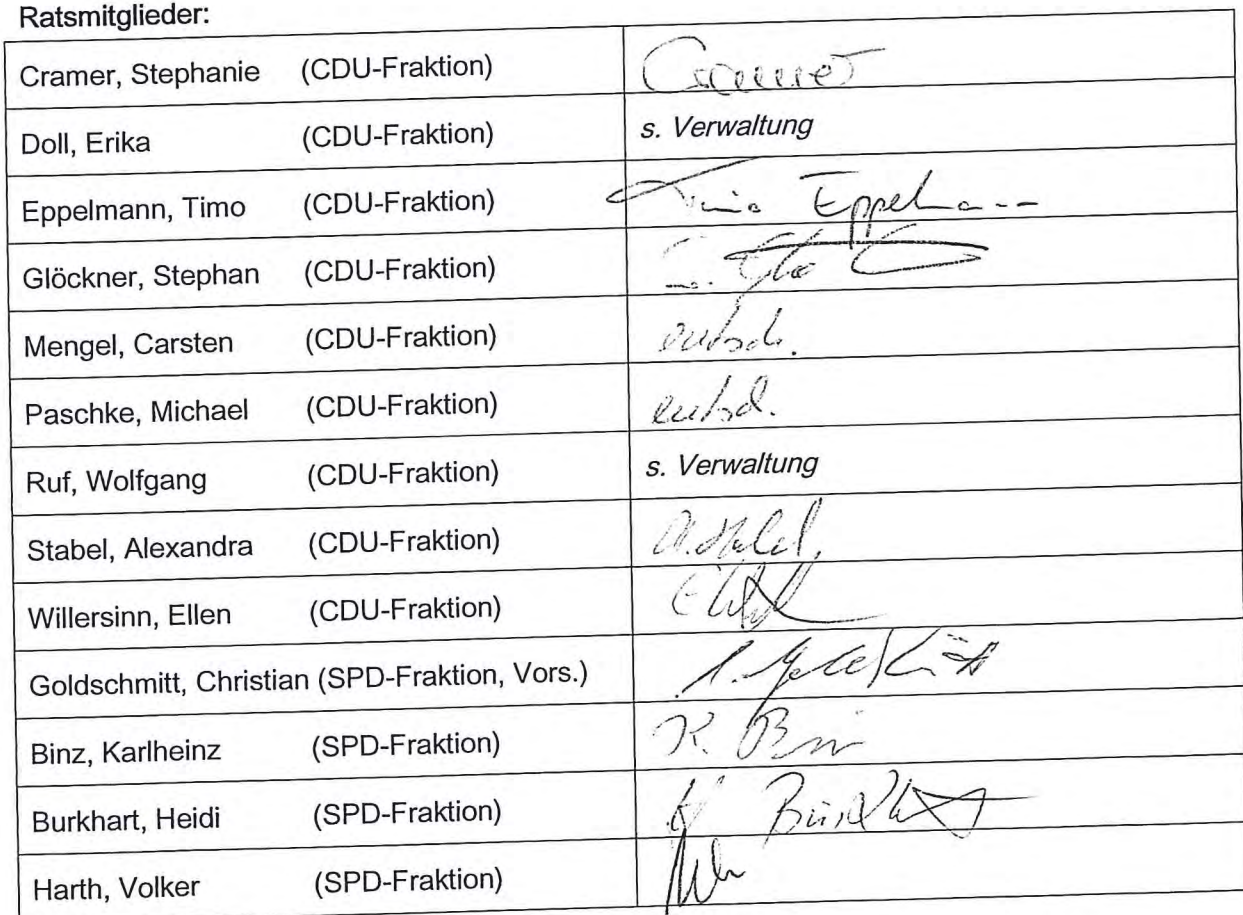 Ratsmitglieder:
Cramer, Stephanie (CDU-Fraktion) Cramer
Doll, Erika (CDU-Fraktion) s. Verwaltung
Eppelmann, Timo (CDU-Fraktion) Timo Eppelmann
Glöckner, Stephan (CDU-Fraktion)
Mengel, Carsten (CDU-Fraktion) entsch.
Paschke, Michael (CDU-Fraktion) entsch.
Ruf, Wolfgang (CDU-Fraktion) s. Verwaltung
Stabel, Alexandra (CDU-Fraktion) A. Stabel
Willersinn, Ellen (CDU-Fraktion)
Goldschmitt, Christian (SPD-Fraktion, Vors.)
Binz, Karlheinz (SPD-Fraktion) K. Binz
Burkhart, Heidi (SPD-Fraktion) H. Burkhart
Harth, Volker (SPD-Fraktion)